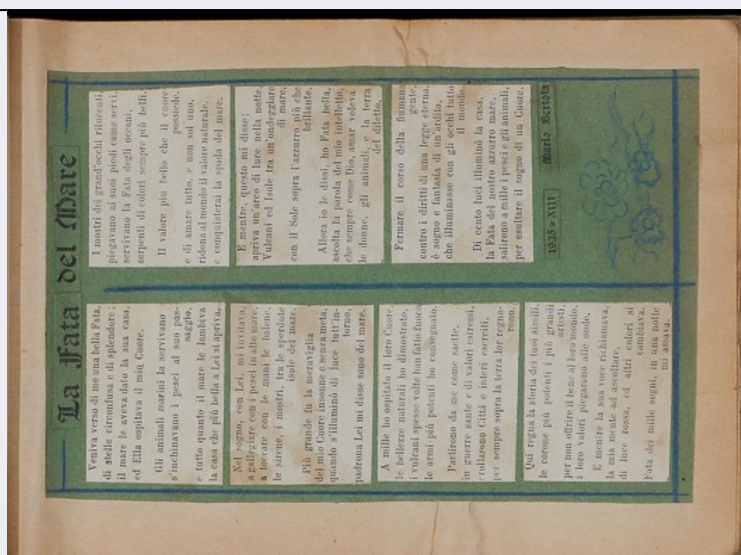 La Fata del Mare
Veniva verso di me una bella Fata,
di stelle circonfusa e di splendore:
il mare le aveva dato la sua casa,
ed Ella ospitava il mio Cuore.
Gli animali marini la servivano
s'inchinavano i pesci al suo pas-
saggio,
e tutto quanto il mare le lambiva
la casa che più bella a Lei si apriva.
Nel sogno, con Lei, mi invitava,
a galleggiare con i pesci in alto mare:
a toccare con le mani le balene,
le sirene, i mostri, tra le sperdute
isole del mare.
Più grande fu la meraviglia
del mio Cuore insonne e senza meta,
quando s'illuminò di luce tutt'in-
torno,
padrona Lei mi disse sono del mare.
A mille ho ospitato il loro Cuore,
le bellezze naturali ho dimostrato,
i vulcani spesse volte han fatto fuoco
le armi più potenti ho consegnato.
Partirono da me come saette,
in guerre sante e di valori estremi,
crollarono Città e interi eserciti,
per sempre sopra la terra lor regna-
rono.
Qui regna la storia dei tuoi simili,
le corone più potenti i più grandi
artisti,
per non offrire il bene al loro mondo,
i loro valori piegarono alle onde.
E mentre la sua voce richiamava,
la mia mente ad ascoltare,
di luce rossa, ed altri colori si
cambiava.
Fata dei mille sogni, in una notte
mi amava.
I mostri dei grand'occhi rilucenti,
piegavano ai suoi piedi come servi,
servivano la Fata degli oceani,
serpenti di colori sempre più belli.
Il valore più bello che il cuore
possiede.
e di amare tutto, e non sol uno,
ridona al mondo il valore naturale,
e conquisterai la spada del mare.
E mentre, questo mi disse;
apriva un'arco di luce nella notte,
Vulcani ed Isole tra un'ondeggiare
di mare,
con il Sole sopra l'azzurro più che
brillante.
Allora io le dissi, ho Fata bella,
ascolta la parola del mio intelletto,
che sempre come Dio, amar voleva
le donne, gli animali, e la terra
del diletto.
Fermare il corso della fiumana
gente,
contro i diritti di una legge eterna,
è sogno e fantasia di un'ardito,
che illuminasse con gli occhi tutto
il mondo.
Di cento luci illuminò la casa,
la Fata del nostro azzurro mare,
salirono a mille i pesci e gli animali,
per esaltare il sogno di un Cuore.
1935 = XIII Mario Bertola